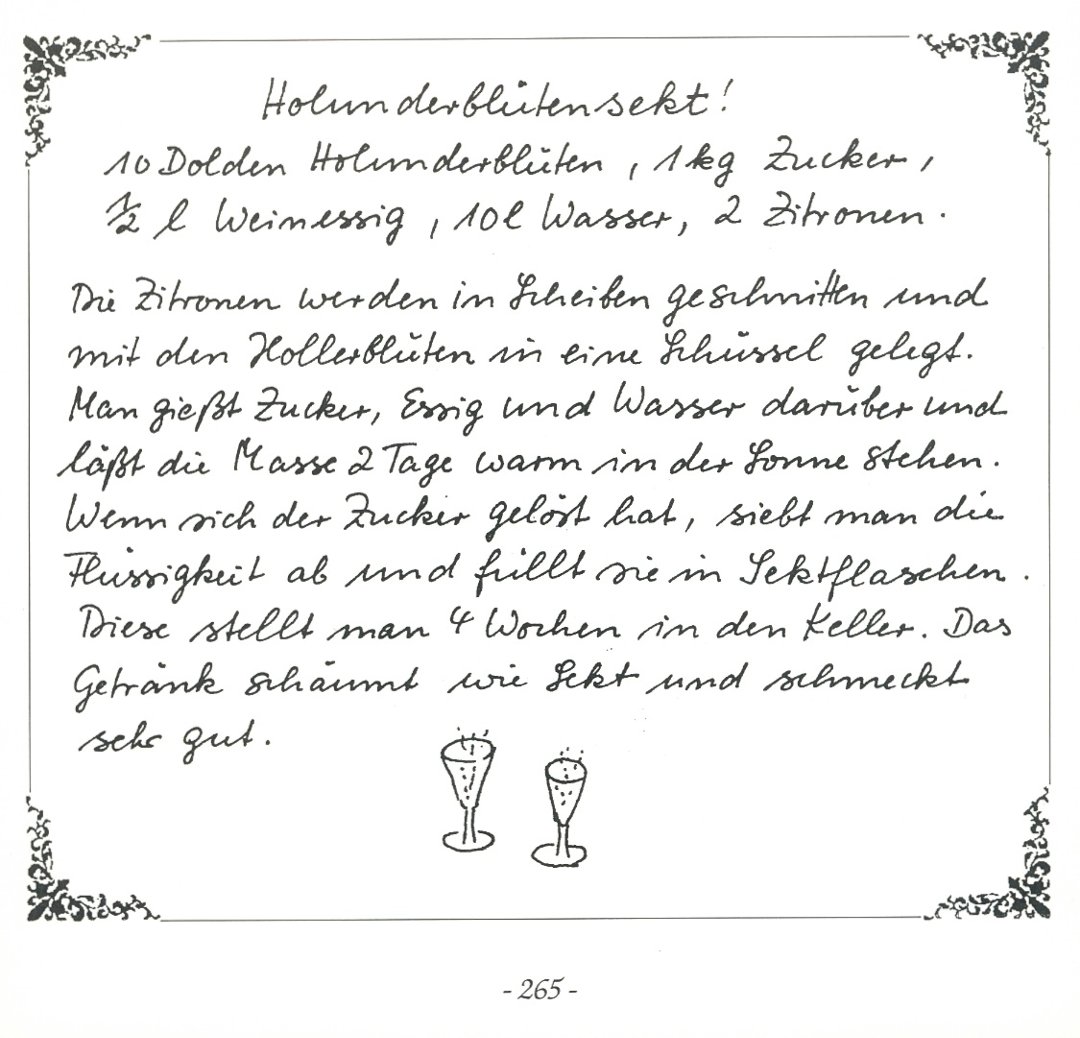 Holunderblütensekt!
10 Dolden Holunderblüten, 1 kg Zucker,
½ l Weinessig, 10 l Wasser, 2 Zitronen.
Die Zitronen werden in Scheiben geschnitten und
mit den Hollerblüten in eine Schüssel gelegt.
Man gießt Zucker, Essig und Wasser darüber und
läßt die Masse 2 Tage warm in der Sonne stehen.
Wenn sich der Zucker gelöst hat, siebt man die
Flüssigkeit ab und füllt sie in Sektflaschen.
Diese stellt man 4 Wochen in den Keller. Das
Getränk schäumt wie Sekt und schmeckt
sehr gut.
- 265 -